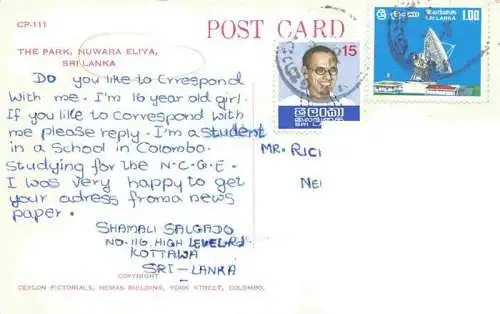 CP-111
POST CARD
THE PARK, NUWARA ELIYA,
SRI LANKA
15
ශ්‍රී ලංකා
இலங்கை
SRI LANKA
1.00
Do you like to Crrespond
with me. I'm 16 year old girl.
If you like to correspond with
me please reply. I'm a student
in a School in Colombo.
Studying for the N.C.G.E.
I was very happy to get
your adress from a news
paper.
MR. RICI
NEI
SHAMALI SALGADO
NO. 116, HIGH LEVEL RD
KOTTAWA
SRI-LANKA
COPYRIGHT
CEYLON PICTORIALS, HEMAS BUILDING, YORK STREET, COLOMBO.